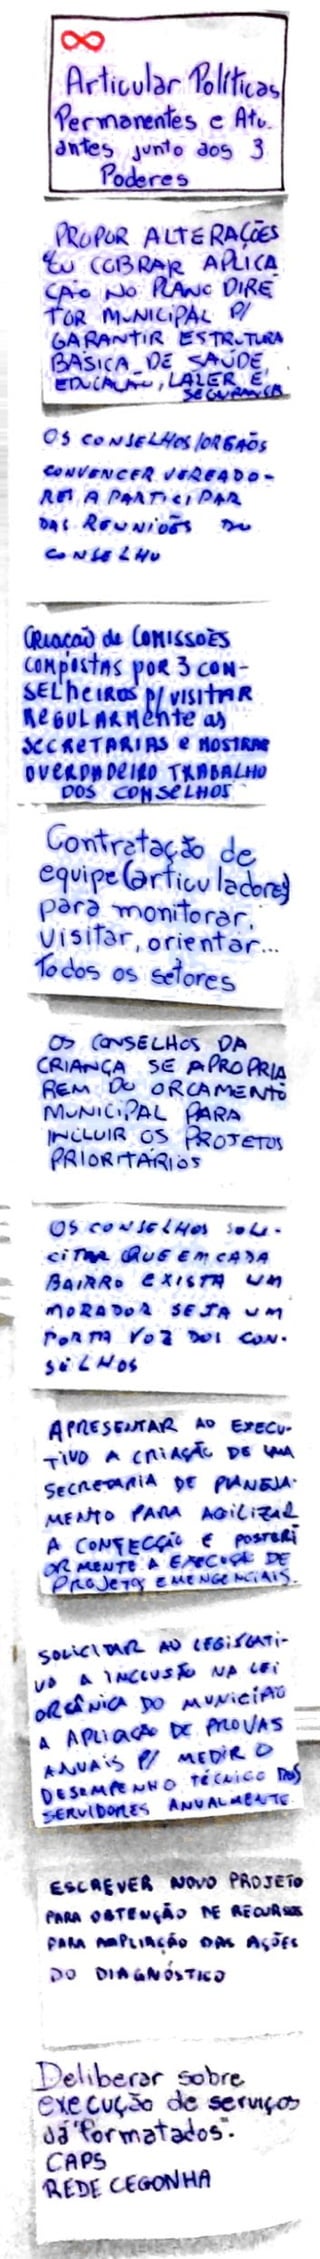 ∞
Articular Políticas
Permanentes e Atu-
antes junto aos 3
Poderes
PROPOR ALTERAÇÕES
OU COBRAR APLICA
ÇÃO NO PLANO DIRE
TOR MUNICIPAL P/
GARANTIR ESTRUTURA
BÁSICA DE SAÚDE,
EDUCAÇÃO, LAZER E
SEGURANÇA
OS CONSELHOS/ORGÃOS
CONVENCER VEREADO-
RES A PARTICIPAR
DAS REUNIÕES DO
CONSELHO
CRIAÇÃO de COMISSÕES
COMPOSTAS POR 3 CON-
SELHEIROS P/ VISITAR
REGULARMENTE as
SECRETARIAS e MOSTRAR
O VERDADEIRO TRABALHO
DOS CONSELHOS
Contratação de
equipe (articuladores)
para monitorar,
visitar, orientar...
Todos os setores
OS CONSELHOS DA
CRIANÇA SE APROPRIA
REM DO ORÇAMENTO
MUNICIPAL PARA
INCLUIR OS PROJETOS
PRIORITÁRIOS
OS CONSELHOS SOLI-
CITAR QUE EM CADA
BAIRRO EXISTA UM
MORADOR SEJA UM
PORTA VOZ DOS CON-
SELHOS
APRESENTAR AO EXECU-
TIVO A CRIAÇÃO DE UMA
SECRETARIA DE PLANEJA-
MENTO PARA AGILIZAR
A CONFECÇÃO E POSTERI
ORMENTE A EXECUÇÃO DE
PROJETOS EMENGENCIAIS.
SOLICITAR AO LEGISLATI-
VO A INCLUSÃO NA LEI
ORGÂNICA DO MUNICÍPIO
A APLICAÇÃO DE PROVAS
ANUAIS P/ MEDIR O
DESEMPENHO TÉCNICO DOS
SERVIDORES ANUALMENTE.
ESCREVER NOVO PROJETO
PARA OBTENÇÃO DE RECURSOS
PARA AMPLIAÇÃO DAS AÇÕES
DO DIAGNÓSTICO
Deliberar sobre
execução de serviços
já "formatados".
CAPS
REDE CEGONHA